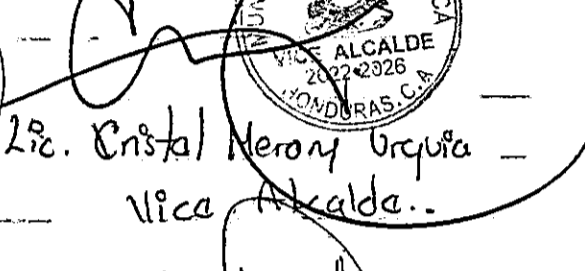 VICE ALCALDE
2022-2026
HONDURAS, C.A.
Lic. Cristal Merary Urquia
Vice Alcalde..